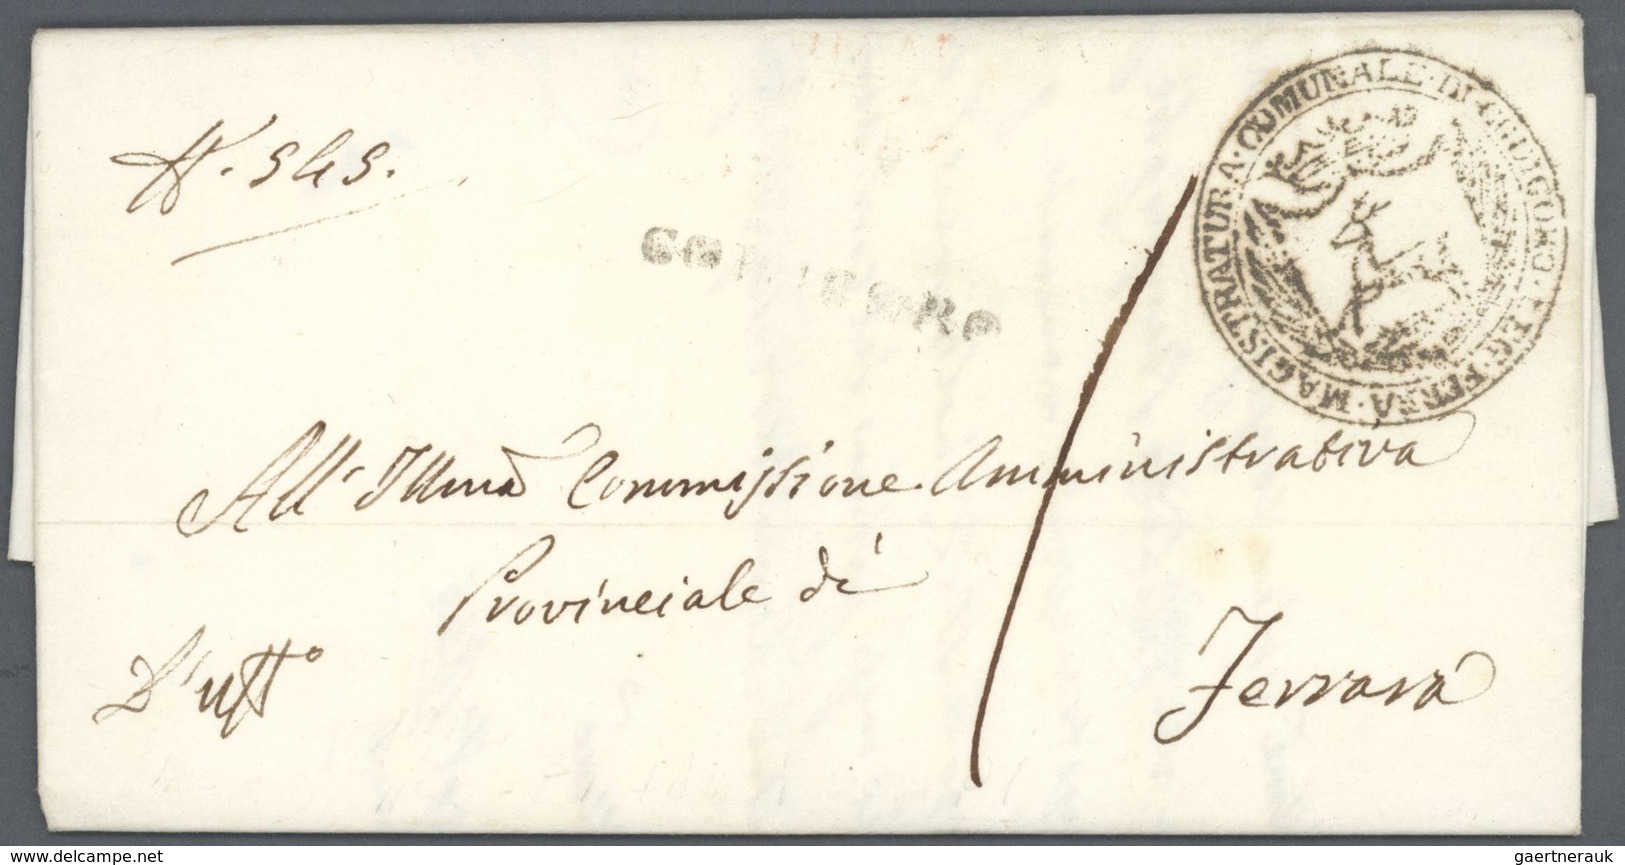 N. 545.
MAGISTRATURA · COMUNALE · DI · CODIGORO · LEG · FERRA ·
CODIGORO
All' Illma Commissione Amministrativa
Provinciale di
Ferrara
D'uffo
delcampe.net
gaertnerauk